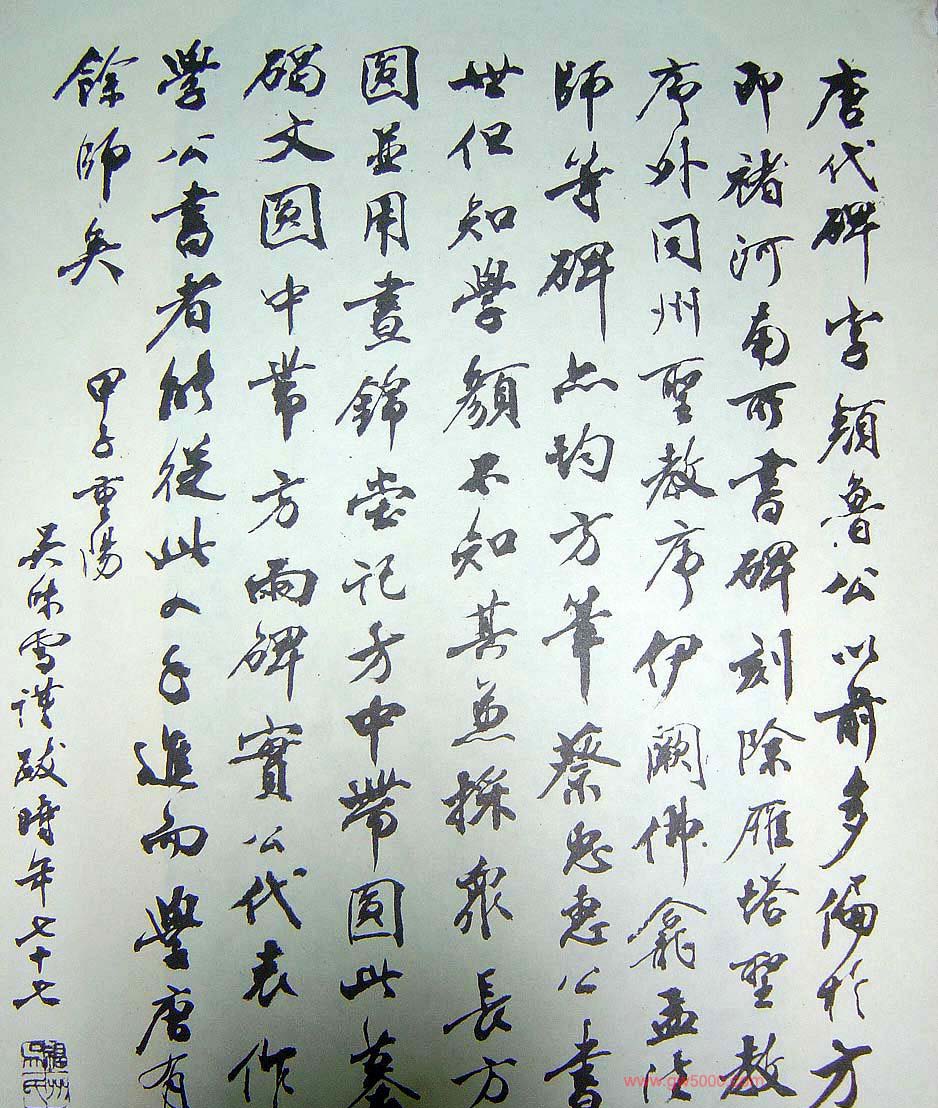 唐代碑字顏魯公以前多偏於方
即褚河南所書碑刻除雁塔聖教
序外同州聖教序伊闕佛龕孟法
師等碑亦均方筆蔡忠惠公書
世但知學顏不知其兼採眾長方
圓並用晝錦堂記方中帶圓此墓
碣文圓中帶方兩碑實公代表作
學公書者能從此入手進而學唐有
餘師矣
甲子重陽
吳味雪謹跋時年七十七
www.gw5000.com